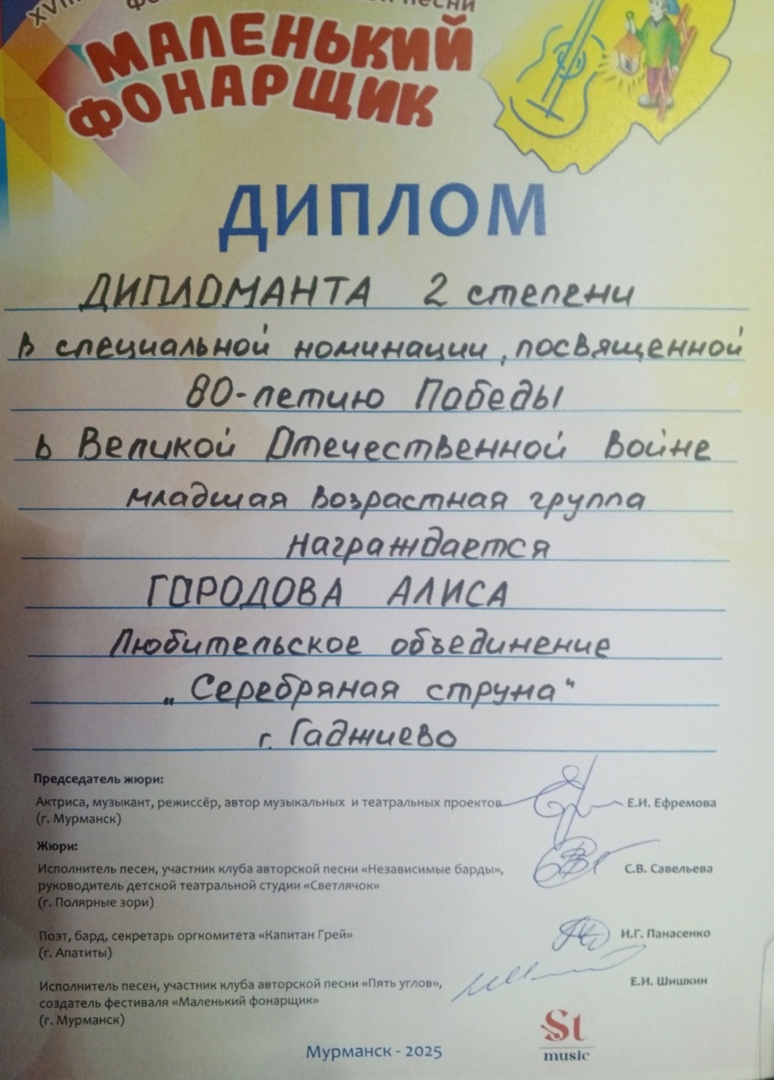 XVIII
песни
МАЛЕНЬКИЙ
ФОНАРЩИК
ДИПЛОМ
ДИПЛОМАНТА 2 степени
в специальной номинации, посвященной
80-летию Победы
в Великой Отечественной Войне
младшая возрастная группа
награждается
ГОРОДОВА АЛИСА
Любительское объединение
„Серебряная струна“
г. Гаджиево
Председатель жюри:
Актриса, музыкант, режиссёр, автор музыкальных и театральных проектов Е.И. Ефремова
(г. Мурманск)
Жюри:
Исполнитель песен, участник клуба авторской песни «Независимые барды», С.В. Савельева
руководитель детской театральной студии «Светлячок»
(г. Полярные зори)
Поэт, бард, секретарь оргкомитета «Капитан Грей» И.Г. Панасенко
(г. Апатиты)
Исполнитель песен, участник клуба авторской песни «Пять углов», Е.И. Шишкин
создатель фестиваля «Маленький фонарщик»
(г. Мурманск)
St
music
Мурманск - 2025